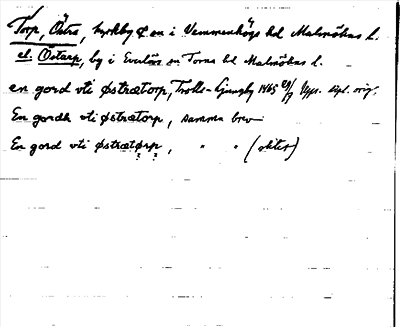 Torp, Östra, kyrkby o sn i Vemmenhögs hd Malmöhus l.
el. Östarp, by i Everlövs sn Torna hd Malmöhus l.
en gord vti østrætorp, Trolle-Ljungby 1465 29/9 Upps. dipl. orig.
En gordh vti østrætorp, samma brev
En gord vti østrætørp, " " (dkter)